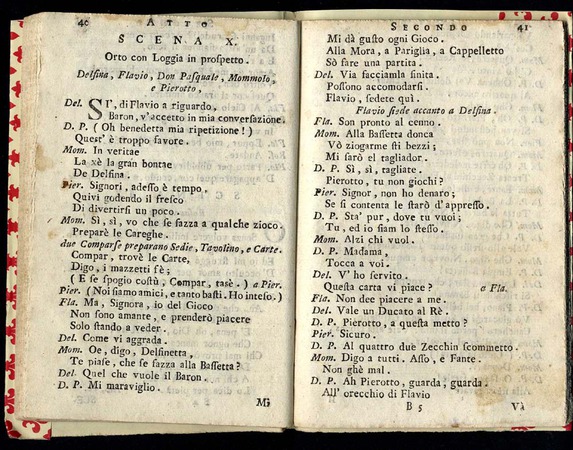 40 ATTO
SCENA X.
Orto con Loggia in prospetto.
Delfina, Flavio, Don Pasquale, Mommolo,
e Pierotto,
Del. SI', di Flavio a riguardo,
Baron, v'accetto in mia conversazione.
D. P. (Oh benedetta mia ripetizione!)
Quest' è troppo favore.
Mom. In veritae
La xè la gran bontae
De Delfina.
Pier. Signori, adesso è tempo,
Quivi godendo il fresco
Di divertirsi un poco.
Mom. Sì, sì, vo che se fazza a qualche zioco.
Preparè le Careghe.
due Comparse preparano Sedie, Tavolino, e Carte.
Compar, trovè le Carte,
Digo, i mazzetti fè;
(E se spogio costù, Compar, tasè.) a Pier.
Pier. (Noi siamo amici, e tanto basti. Ho inteso.)
Fla. Ma, Signora, io del Gioco
Non sono amante, e prenderò piacere
Solo stando a veder.
Del. Come vi aggrada.
Mom. Oe, digo, Delfinetta,
Te piase, che se fazza alla Bassetta?
Del. Quel che vuole il Baron.
D. P. Mi maraviglio.
Mi
SECONDO 41
Mi dà gusto ogni Gioco.
Alla Mora, a Pariglia, a Cappelletto
Sò fare una partita.
Del. Via facciamla finita.
Possono accomodarsi.
Flavio, sedete quì.
Flavio siede accanto a Delfina.
Fla. Son pronto al cenno.
Mom. Alla Bassetta donca
Vò ziogarme sti bezzi;
Mi sarò el tagliador.
D. P. Sì, sì, tagliate.
Pierotto, tu non giochi?
Pier. Signor, non ho denaro;
Se si contenta le starò d'appresso.
D. P. Sta' pur, dove tu vuoi;
Tu, ed io siam lo stesso.
Mom. Alzi chi vuol.
D. P. Madama,
Tocca a voi.
Del. V' ho servito.
Questa carta vi piace? a Fla.
Fla. Non dee piacere a me.
Del. Vale un Ducato al Rè.
D. P. Pierotto, a questa metto?
Pier. Sicuro.
D. P. Al quattro due Zecchin scommetto.
Mom. Digo a tutti. Asso, e Fante.
Non ghè mal.
D. P. Ah Pierotto, guarda, guarda.
All' orecchio di Flavio
B 5 Và